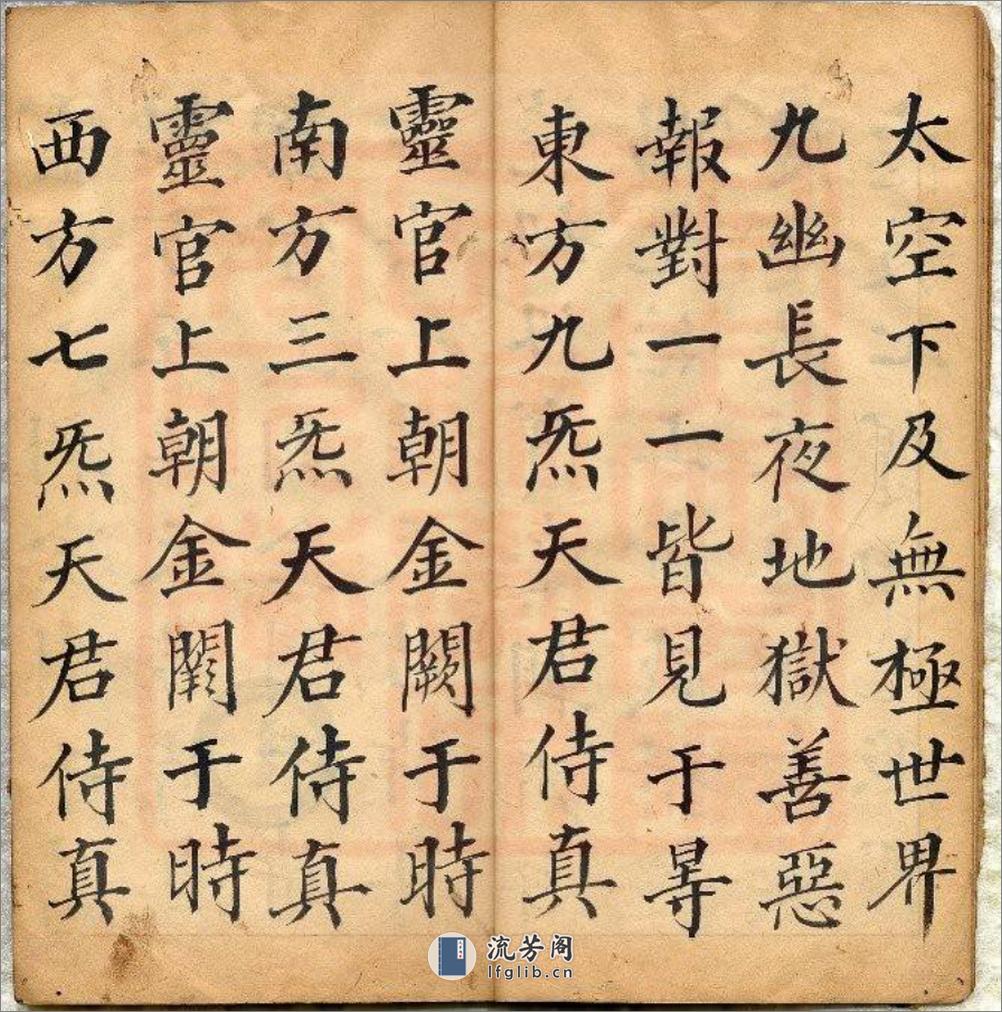 太空下及無極世界
九幽長夜地獄善惡
報對一一皆見于
東方九炁天君侍真
靈官上朝金闕于時
南方三炁天君侍真
靈官上朝金闕于時
西方七炁天君侍真
流芳阁
lfglib.cn